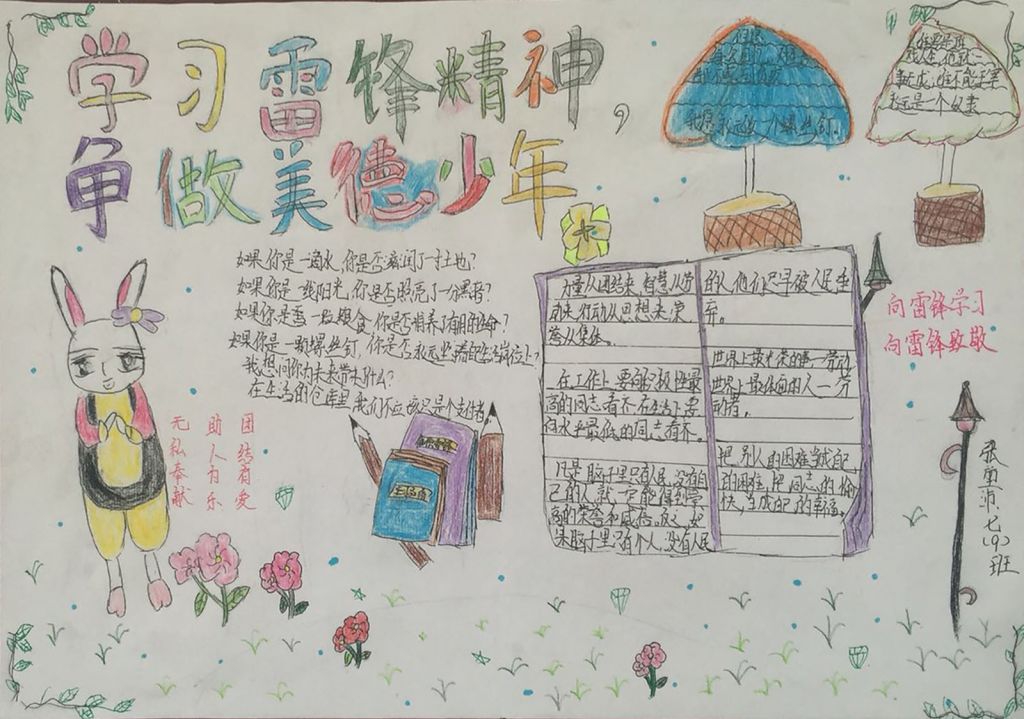 学习雷锋精神,
争做美德少年
我愿永远做一个螺丝钉。
永远是一个奴隶
如果你是一滴水,你是否滋润了一寸土地?
如果你是一线阳光,你是否照亮了一分黑暗?
如果你是一粒粮食,你是否哺养了有用的生命?
如果你是一颗螺丝钉,你是否永远坚守着你生活的岗位上?
我想问你为未来带来什么?
在生活的仓库里,我们不应该只是个支付者
力量从团结来,智慧从劳
动来,行动从思想来,荣
誉从集体。
在工作上,要向积极性最
高的同志看齐,在生活上,要
向水平最低的同志看齐。
凡是脑子里只有人民,没有自
己的人,就一定能得到崇
高的荣誉和威信。反之,如
果脑子里只有个人,没有人民
的人,他们迟早被人民唾
弃。
世界上最光荣的事—劳动
世界上最体面的人—劳
动者。
把别人的困难当成自己
的困难,把同志的愉
快,当成自己的幸福。
向雷锋学习
向雷锋致敬
团结有爱
助人为乐
无私奉献
七(9)班